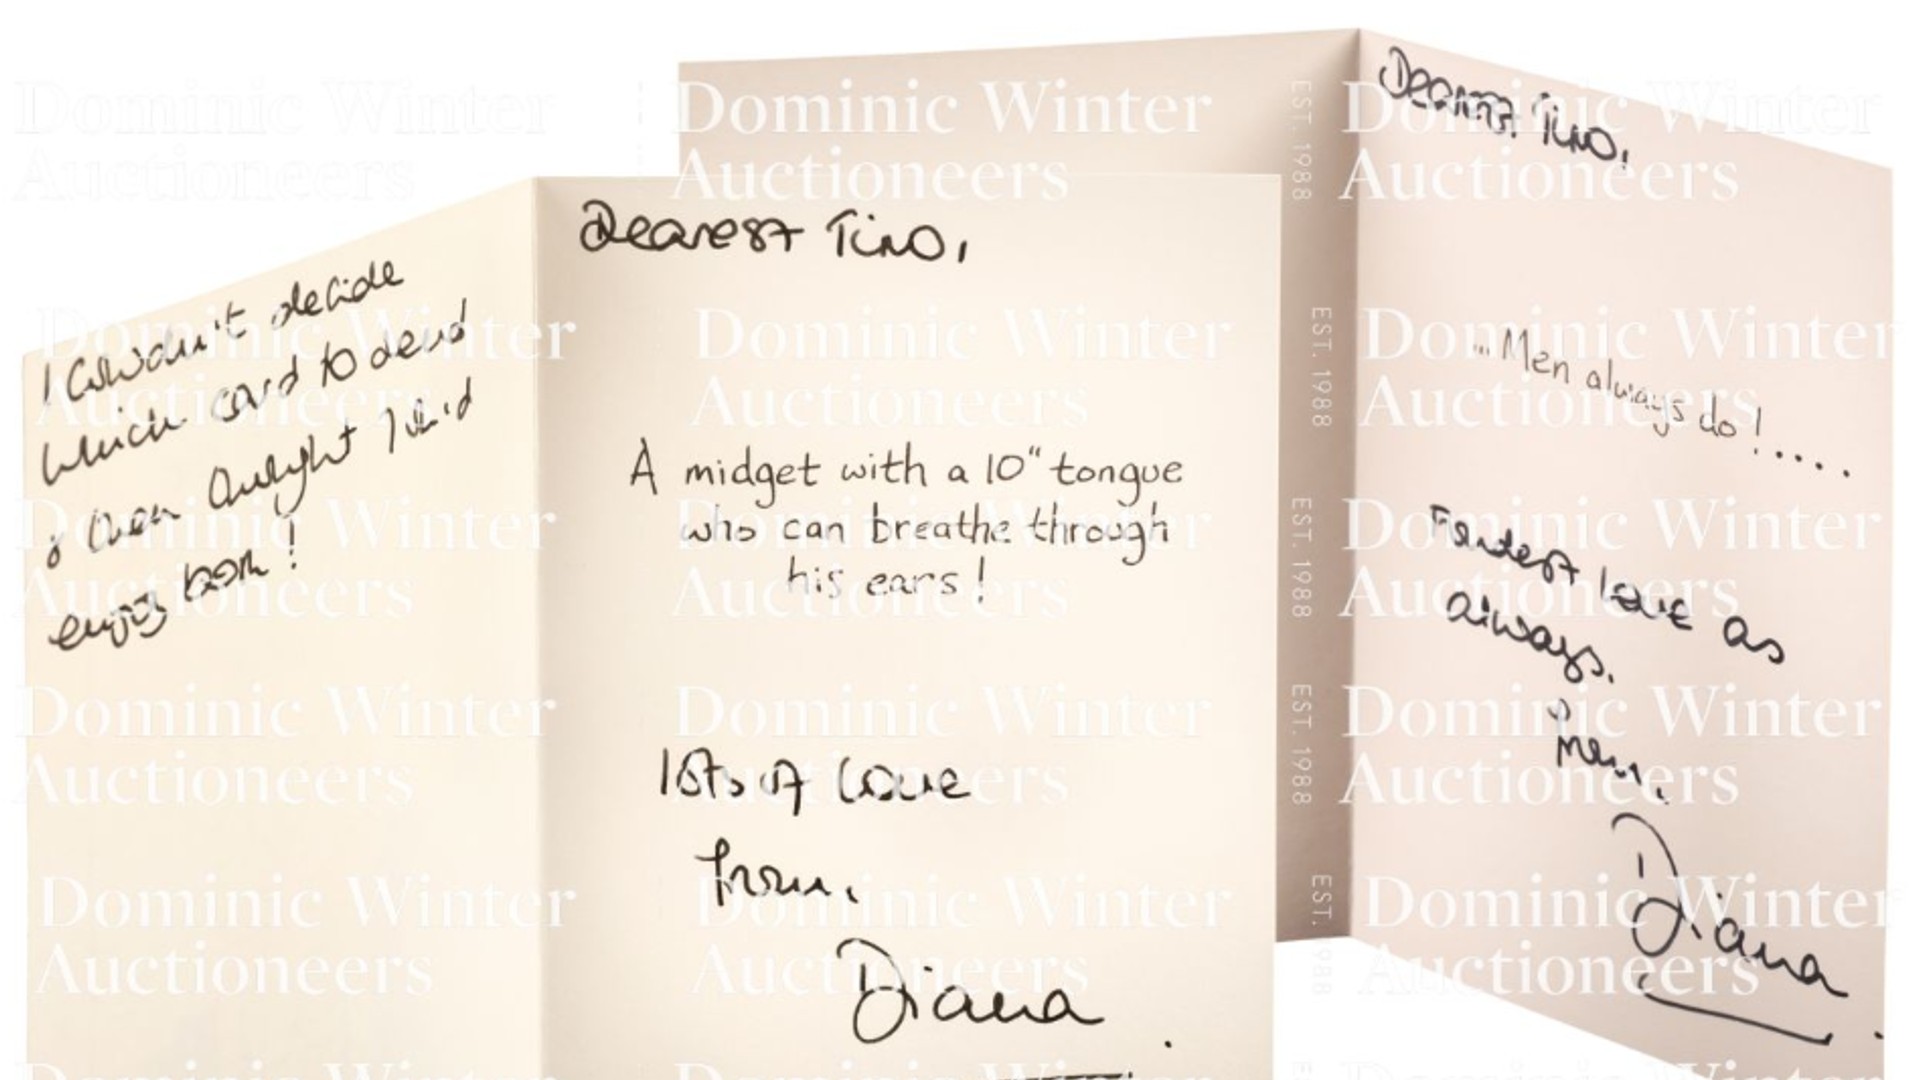 I couldn't decide
which card to send
& then thought I'd
enjoy both!
Dearest Tino,
A midget with a 10" tongue
who can breathe through
his ears!
lots of love
from,
Diana
Dearest Tino,
... Men always do!....
Fondest love as
always,
from,
Diana
Dominic Winter
Auctioneers
EST. 1988